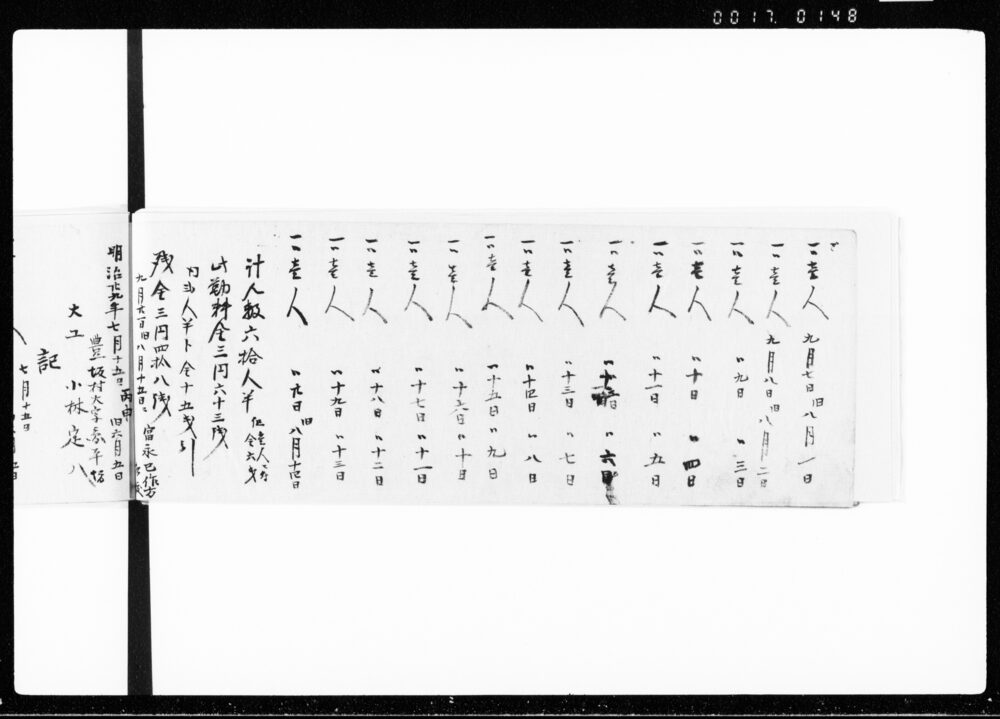 0017. 0148
一〃壱人 九月七日 旧八月一日
一〃壱人 九月八日 旧八月二日
一〃壱人 〃九日 〃三日
一〃壱人 〃十日 〃四日
一〃壱人 〃十一日 〃五日
一〃壱人 〃六日
一〃壱人 〃十三日 〃七日
一〃壱人 〃十四日 〃八日
一〃壱人 〃十五日 〃九日
一〃壱人 〃十六日 〃十日
一〃壱人 〃十七日 〃十一日
一〃壱人 〃十八日 〃十二日
一〃壱人 〃十九日 〃十三日
一〃壱人 旧八月十四日
計人数六拾人半 但壱人ニ付金六銭
此勤料金三円六十三銭
内 人半ト金十五銭引
残金三円四拾八銭
九月 日旧八月十五日 富永巳作方
明治廿九年七月十五日 丙申 旧六月五日
豊坂村大字
大工 小林定八
記
七月十五日